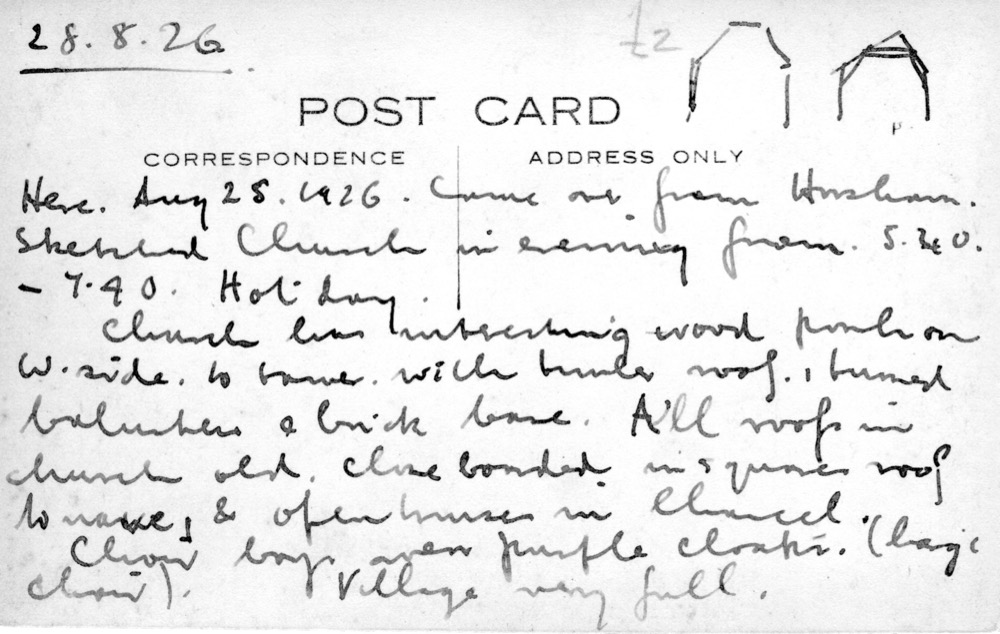 28.8.26
£2
POST CARD
CORRESPONDENCE ADDRESS ONLY
Here. Aug 28. 1926. Came over from Horsham.
Sketched Church in evening from. 5.40.
- 7.40. Hot day.
Church has interesting wood porch on
W. side. to tower. with timber roof. turned
balusters & brick base. All roofs in
church old. close boarded in squares roof
to nave, & open trusses in Chancel.
Choir boys wear purple cloaks. (large
choir). Village very full.